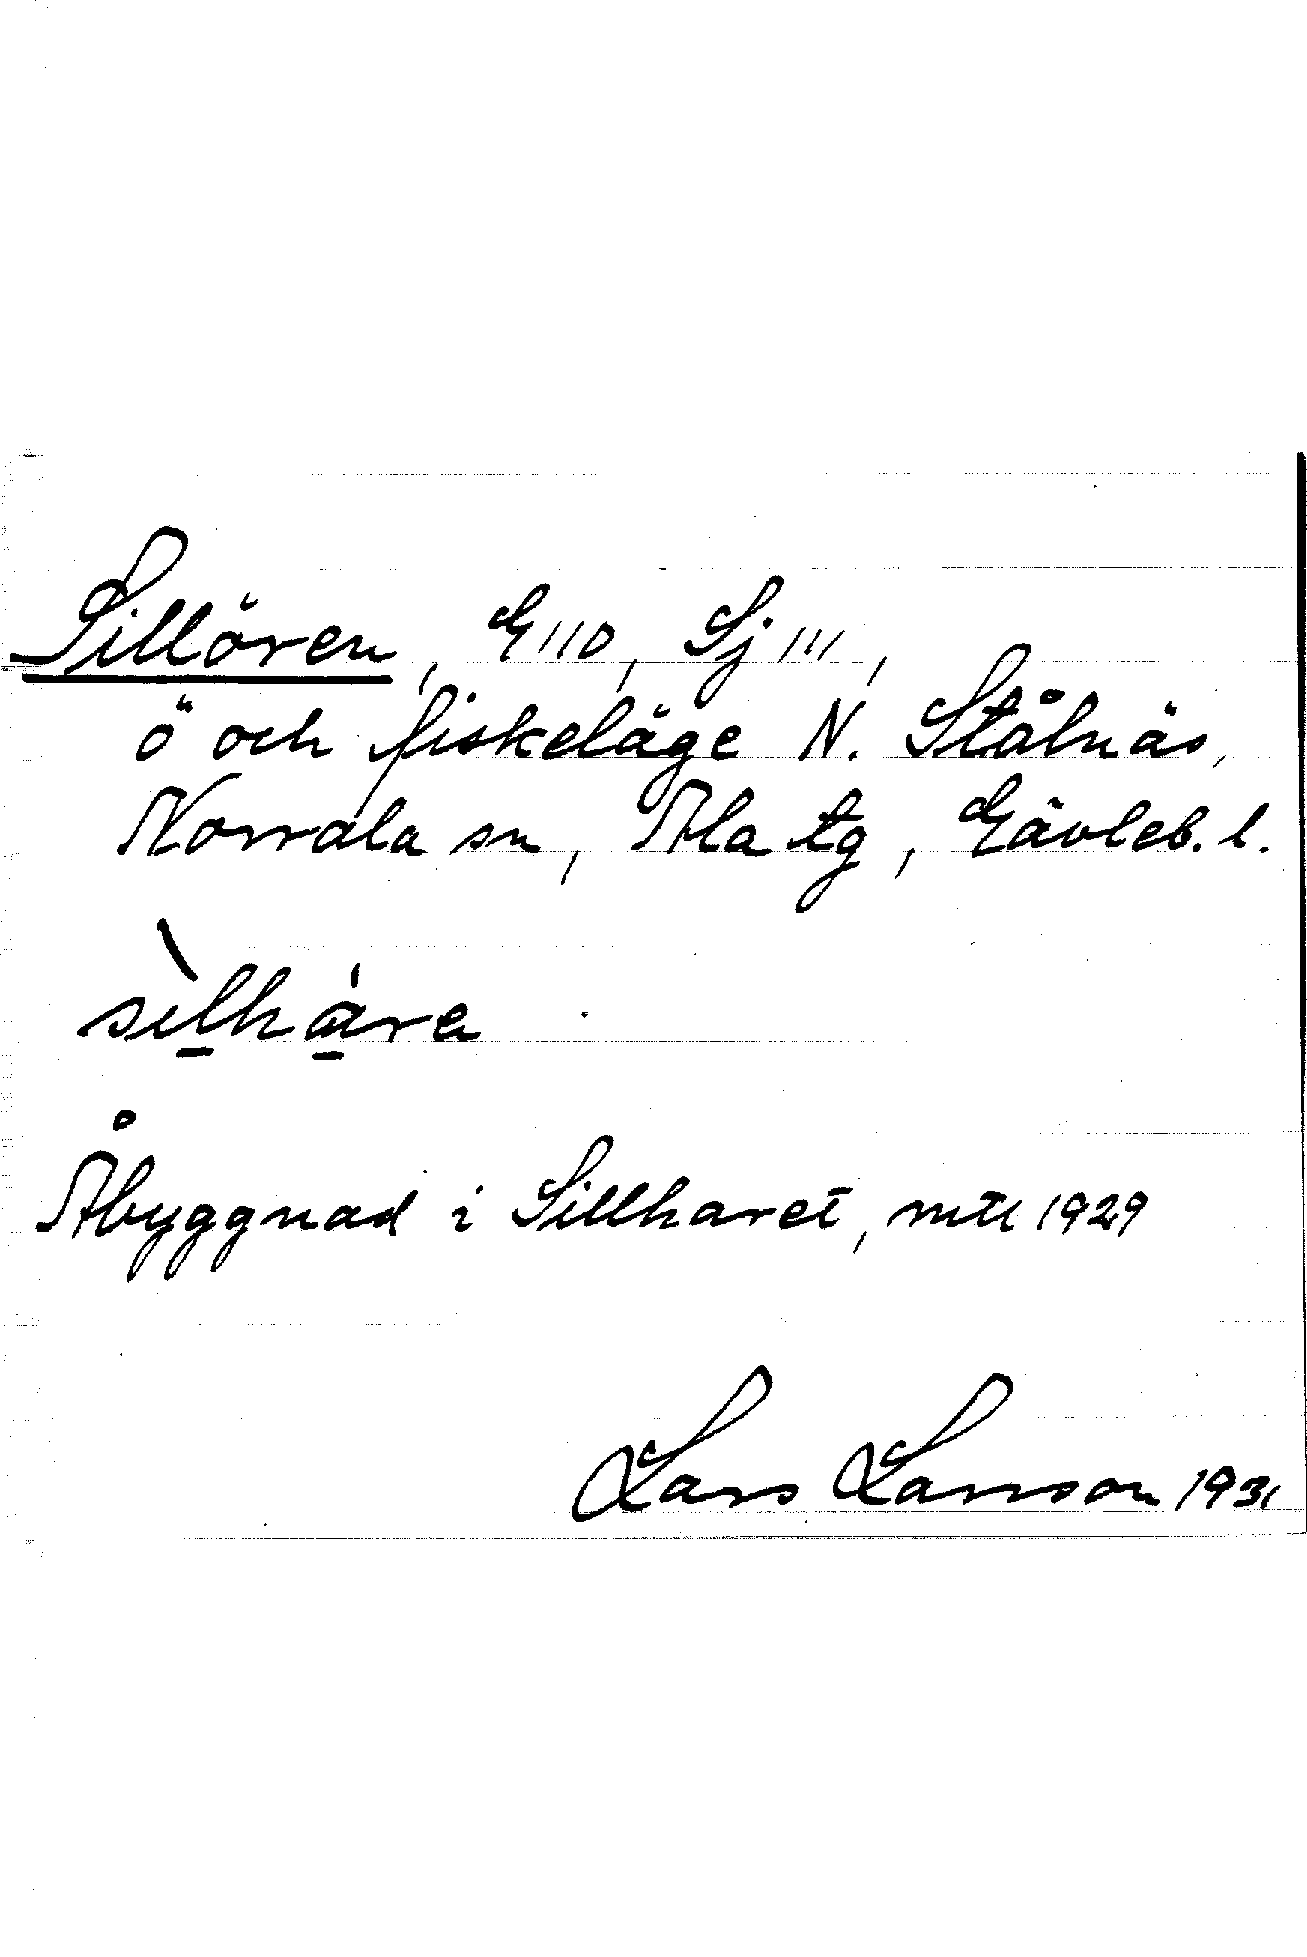 Sillören, G 110, Sj 111,
ö och fiskeläge N. Stålnäs,
Norrala sn, Ala tg, Gävleb. l.
sìlhàra
Åbyggnad i Sillharet, mtl 1929
Lars Larsson 1931